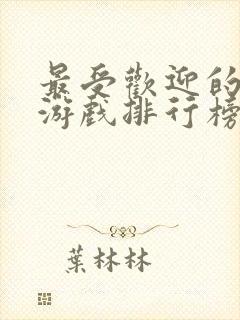 最受歡迎的
游戲排行榜
葉林林